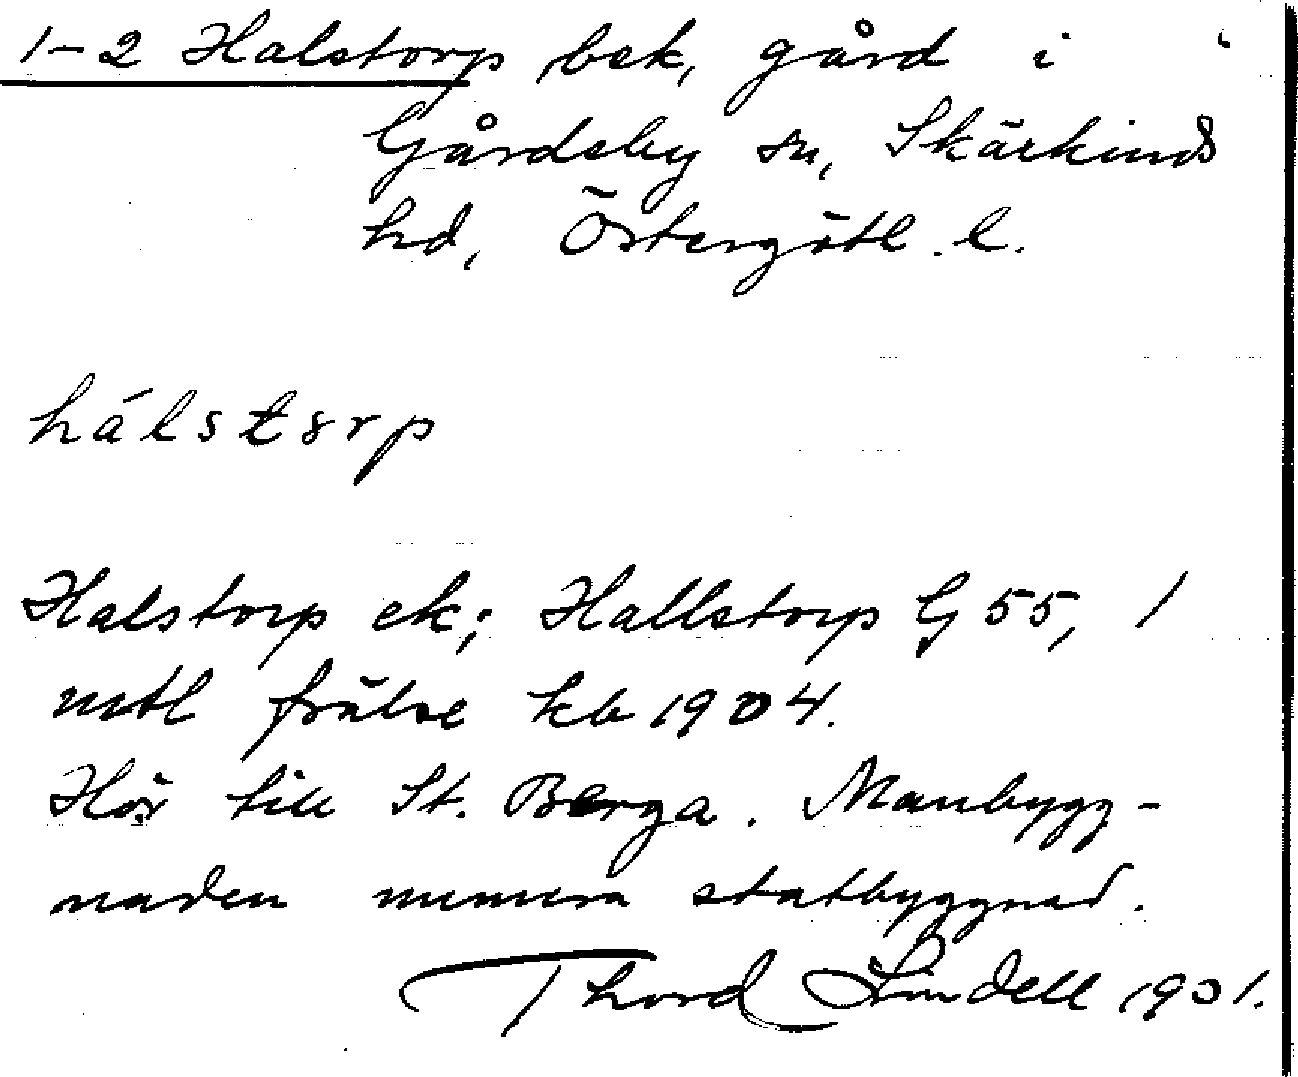 1-2 Halstorp, bek, gård i
Gårdsby sn, Skärkinds
hd, Östergötl. l.
hálstsrp
Halstorp ek; Hallstorp G 55, 1
mtl frälse kb 1904.
Hör till St. Berga. Manbygg-
naden numera statbyggnad.
Thord Lindell 1931.